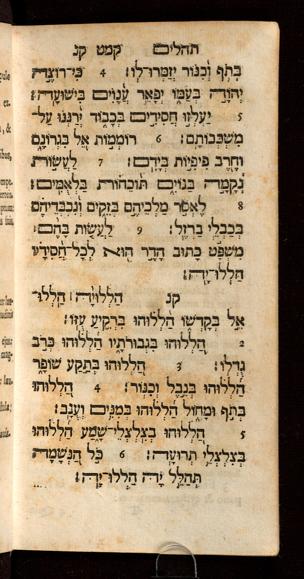 תהלים קמט קנ
בְּתֹף וְכִנּוֹר יְזַמְּרוּ־לוֹ׃ 4 כִּי־רוֹצֶה
יְהוָֹה בְּעַמּוֹ יְפָאֵר עֲנָוִים בִּישׁוּעָה׃
5 יַעְלְזוּ חֲסִידִים בְּכָבוֹד יְרַנְּנוּ עַל־
מִשְׁכְּבוֹתָם׃ 6 רוֹמְמוֹת אֵל בִּגְרוֹנָם
וְחֶרֶב פִּיפִיּוֹת בְּיָדָם׃ 7 לַעֲשׂוֹת
נְקָמָה בַגּוֹיִם תּוֹכֵחוֹת בַּלְאֻמִּים׃
8 לֶאְסֹר מַלְכֵיהֶם בְּזִקִּים וְנִכְבְּדֵיהֶם
בְּכַבְלֵי בַרְזֶל׃ 9 לַעֲשׂוֹת בָּהֶם
מִשְׁפָּט כָּתוּב הָדָר הוּא לְכָל־חֲסִידָיו
הַלְלוּ־יָהּ׃
קנ הַלְלוּיָהּ הַלְלוּ־
אֵל בְּקָדְשׁוֹ הַלְלוּהוּ בִּרְקִיעַ עֻזּוֹ׃
2 הַלְלוּהוּ בִגְבוּרֹתָיו הַלְלוּהוּ כְּרֹב
גֻּדְלוֹ׃ 3 הַלְלוּהוּ בְּתֵקַע שׁוֹפָר
הַלְלוּהוּ בְּנֵבֶל וְכִנּוֹר׃ 4 הַלְלוּהוּ
בְתֹף וּמָחוֹל הַלְלוּהוּ בְּמִנִּים וְעֻגָב׃
5 הַלְלוּהוּ בְצִלְצְלֵי־שָׁמַע הַלְלוּהוּ
בְּצִלְצְלֵי תְרוּעָה׃ 6 כֹּל הַנְּשָׁמָה
תְּהַלֵּל יָהּ הַלְלוּ־יָהּ׃